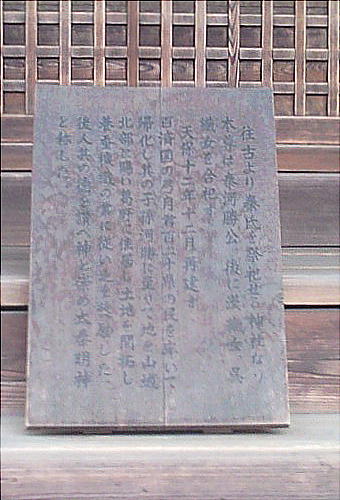 往古より秦氏を祭祀せる神社なり
本尊は秦河勝公 後に漢織女、呉
織女を合祀す
天保十二年十二月再建す
百済国の弓月君百二十県の民を率いて、
帰化し其の子孫河勝に至りて、地を山城
北部に賜い葛野に住居し土地を開拓し
養蚕機織の業に従い之を奨励した、
後人其の徳を讃へ神と崇め太秦明神
と称した。